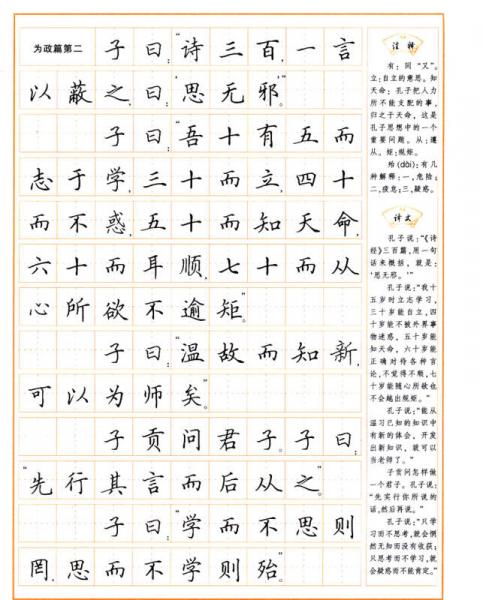 为政篇第二 子曰:“诗三百,一言
以蔽之,曰:‘思无邪’。”
子曰:“吾十有五而
志于学,三十而立,四十
而不惑,五十而知天命,
六十而耳顺,七十而从
心所欲不逾矩。”
子曰:“温故而知新,
可以为师矣。”
子贡问君子。子曰:
“先行其言而后从之。”
子曰:“学而不思则
罔,思而不学则殆。”
注释
有:同“又”。
立:自立的意思。知
天命:孔子把人力
所不能支配的事,
归之于天命,这是
孔子思想中的一个
重要问题。从:遵
从。矩:规矩。
殆(dài):有几
种解释:一,危险;
二,疲怠;三,疑惑。
译文
孔子说:“《诗
经》三百篇,用一句
话来概括,就是:
‘思无邪。’”
孔子说:“我十
五岁时立志学习,
三十岁能自立,四
十岁能不被外界事
物迷惑,五十岁能
知天命,六十岁能
正确对待各种言
论,不觉得不顺,七
十岁能随心所欲也
不会越出规矩。”
孔子说:“能从
温习已知的知识中
有新的体会,开发
出新知识,就可以
当老师了。”
子贡问怎样做
一个君子。孔子说:
“先实行你所说的
话,然后再说。”
孔子说:“只学
习而不思考,就会惘
然无知而没有收获;
只思考而不学习,就
会疑惑而不能肯定。”